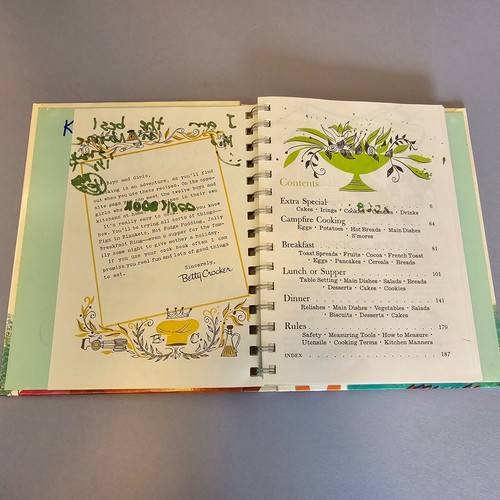 Boys and Girls,
king is an adventure, as you'll find
out when you use these recipes. On the oppo-
site page meet the twelve boys and
girls who in their own
kitchens at home
It's really easy to you know
how. You'll be trying all sorts of things—
Pigs in Blankets, Hot Fudge Pudding, Jelly
Breakfast Ring—even a supper for the fam-
ily some night to give mother a holiday.
If you use your cook book often I can
promise you real fun and lots of good things
to eat.
Sincerely,
Betty Crocker
B C
Contents
Extra Special 6
Cakes • Icings • Cookies • Candies • Drinks
Campfire Cooking 64
Eggs • Potatoes • Hot Breads • Main Dishes
S'mores
Breakfast 81
Toast Spreads • Fruits • Cocoa • French Toast
Eggs • Pancakes • Cereals • Breads
Lunch or Supper 101
Table Setting • Main Dishes • Salads • Breads
Desserts • Cakes • Cookies
Dinner 141
Relishes • Main Dishes • Vegetables • Salads
Biscuits • Desserts • Cakes
Rules 179
Safety • Measuring Tools • How to Measure
Utensils • Cooking Terms • Kitchen Manners
INDEX 187